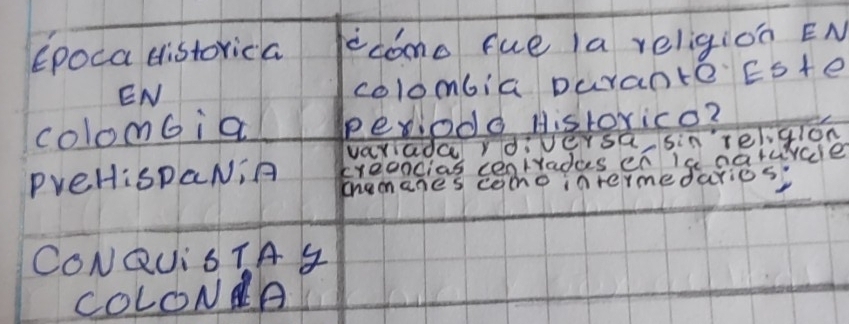 Época Historica
EN
colombia
preHispaNiA
¿cómo fue la religión EN
colombia Durante Este
periodo Historico?
variada, diversa, sin religión
creencias centradas en la naturale
chamanes como intermedarios.
CONQUISTA y
COLONIA